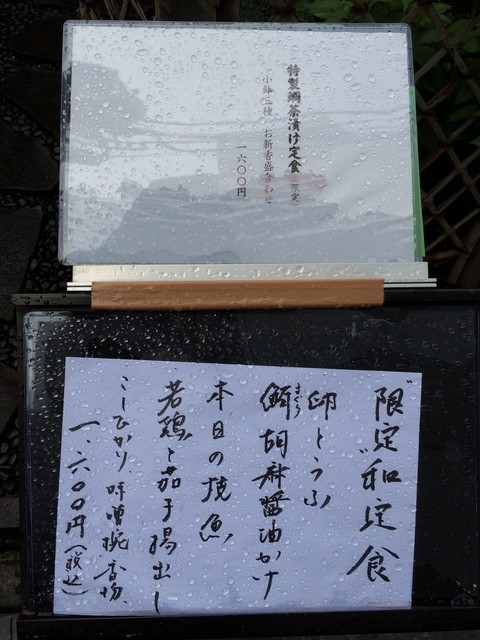 特製鯛茶漬け定食(限定)
小鉢三種 お新香盛合わせ
一六〇〇円
"限定"和定食
卵とうふ
まぐろ
鮪胡麻醤油かけ
本日の焼魚
若鶏と茄子揚出し
こしひかり、味噌椀、香物、
一、六〇〇円(税込)